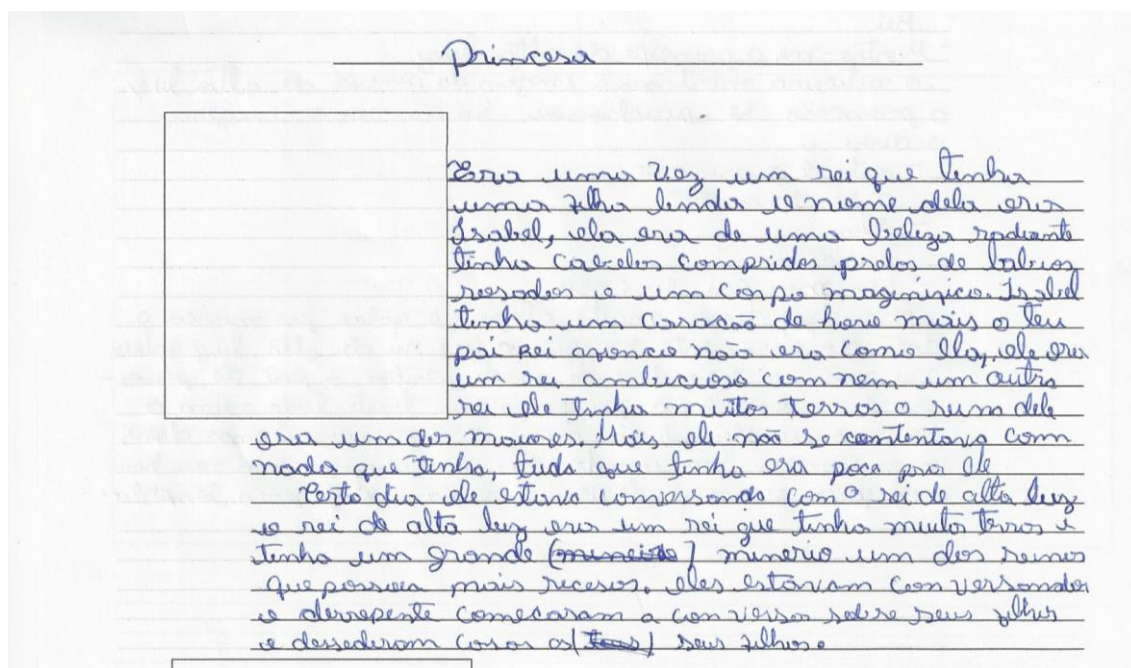 Princesa
Era uma vez um rei que tenha
uma filha linda e o nome dela era
Isabel, ela era de uma beleza radiante
tinha cabelos compridos pretos de labios
rosados e um corpo magninifico. Isabel
tinha um coração de  mais o teu
pai rei  não era como ela, ele era
um rei ambicioso com nem um outro
rei ele tinha muitas terras o  dele
era um dos maiores. Mais ele não se contentava com
nada que tinha, tudo que tinha era poca pra ele
Certo dia ele estava conversando com o rei de alta luz
e o rei de alta luz era um rei que tinha muita terras e
tinha um grande minerio um dos reinos
que possoea mais  eles estavam conversando
e derrepente comecaram a conversa sobre seus filhos
e dessederam casar os seus filhos.